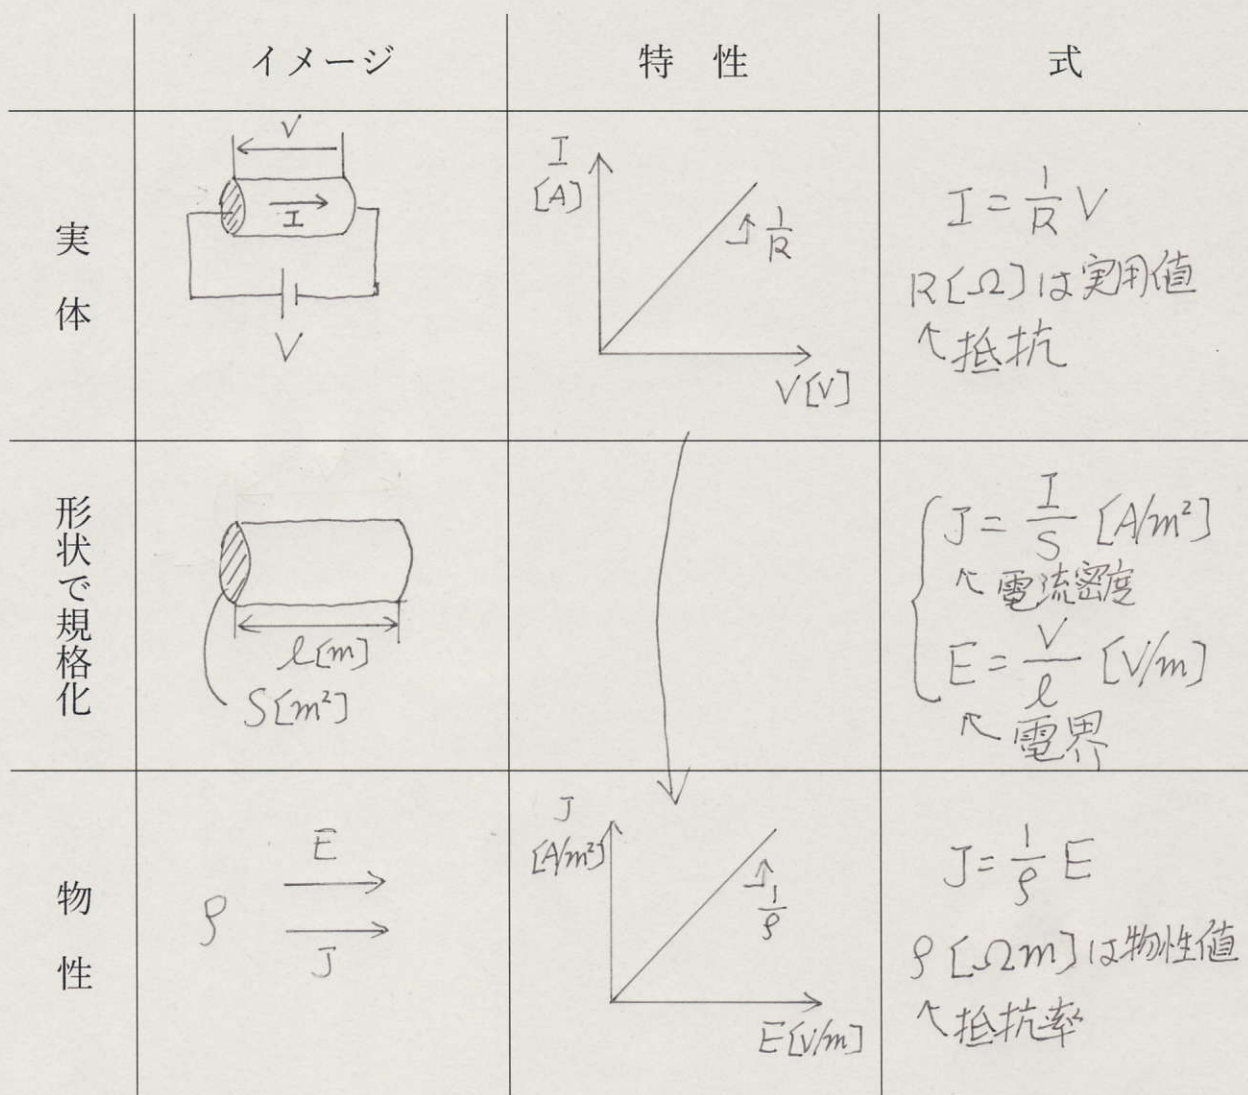 イメージ
特 性
式
実体
V
I
V
I
[A]
1/R
V[V]
I = 1/R V
R[Ω]は実用値
↖抵抗
形状で規格化
l[m]
S[m²]
J = I/S [A/m²]
↖電流密度
E = V/l [V/m]
↖電界
物性
ρ
E
J
J
[A/m²]
1/ρ
E[V/m]
J = 1/ρ E
ρ[Ωm]は物性値
↖抵抗率